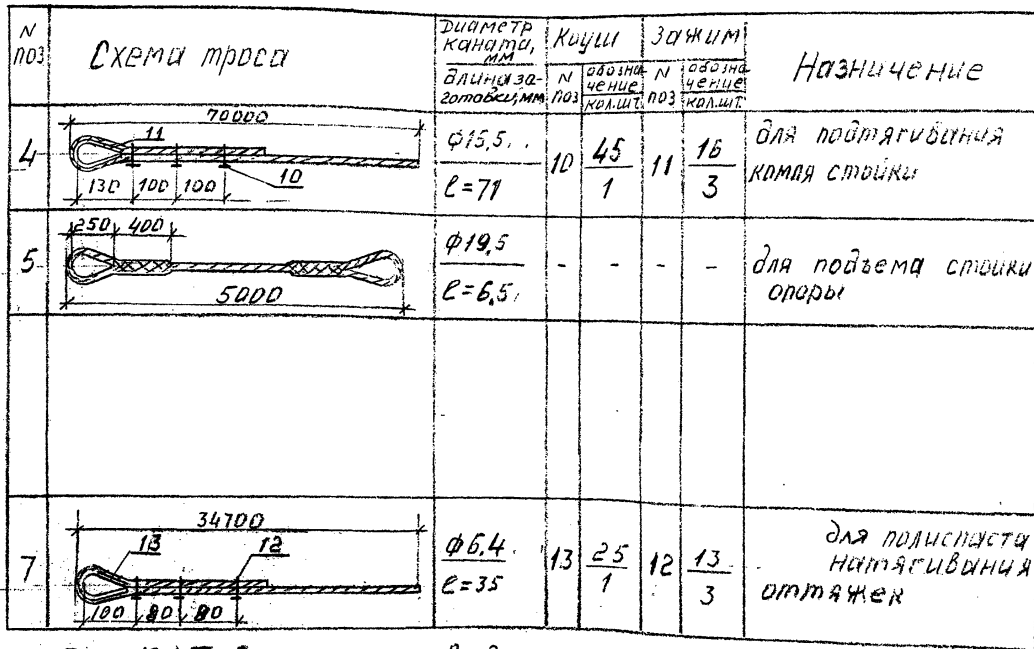 N поз
Схема троса
Диаметр каната, мм
длина заготовки, мм
Коуш
Зажим
N поз
обозначение
кол.шт
N поз
обозначение
кол.шт.
Назначение
4
70000
11
10
130 100 100
ф15,5
ℓ=71
10
45
1
11
16
3
для подтягивания
комля стойки
5
250 400
5000
ф19,5
ℓ=6,5
- - - -
для подъема стойки
опоры
7
34700
13
12
100 80 80
ф6,4
ℓ=35
13
25
1
12
13
3
для полиспаста
натягивания
оттяжек